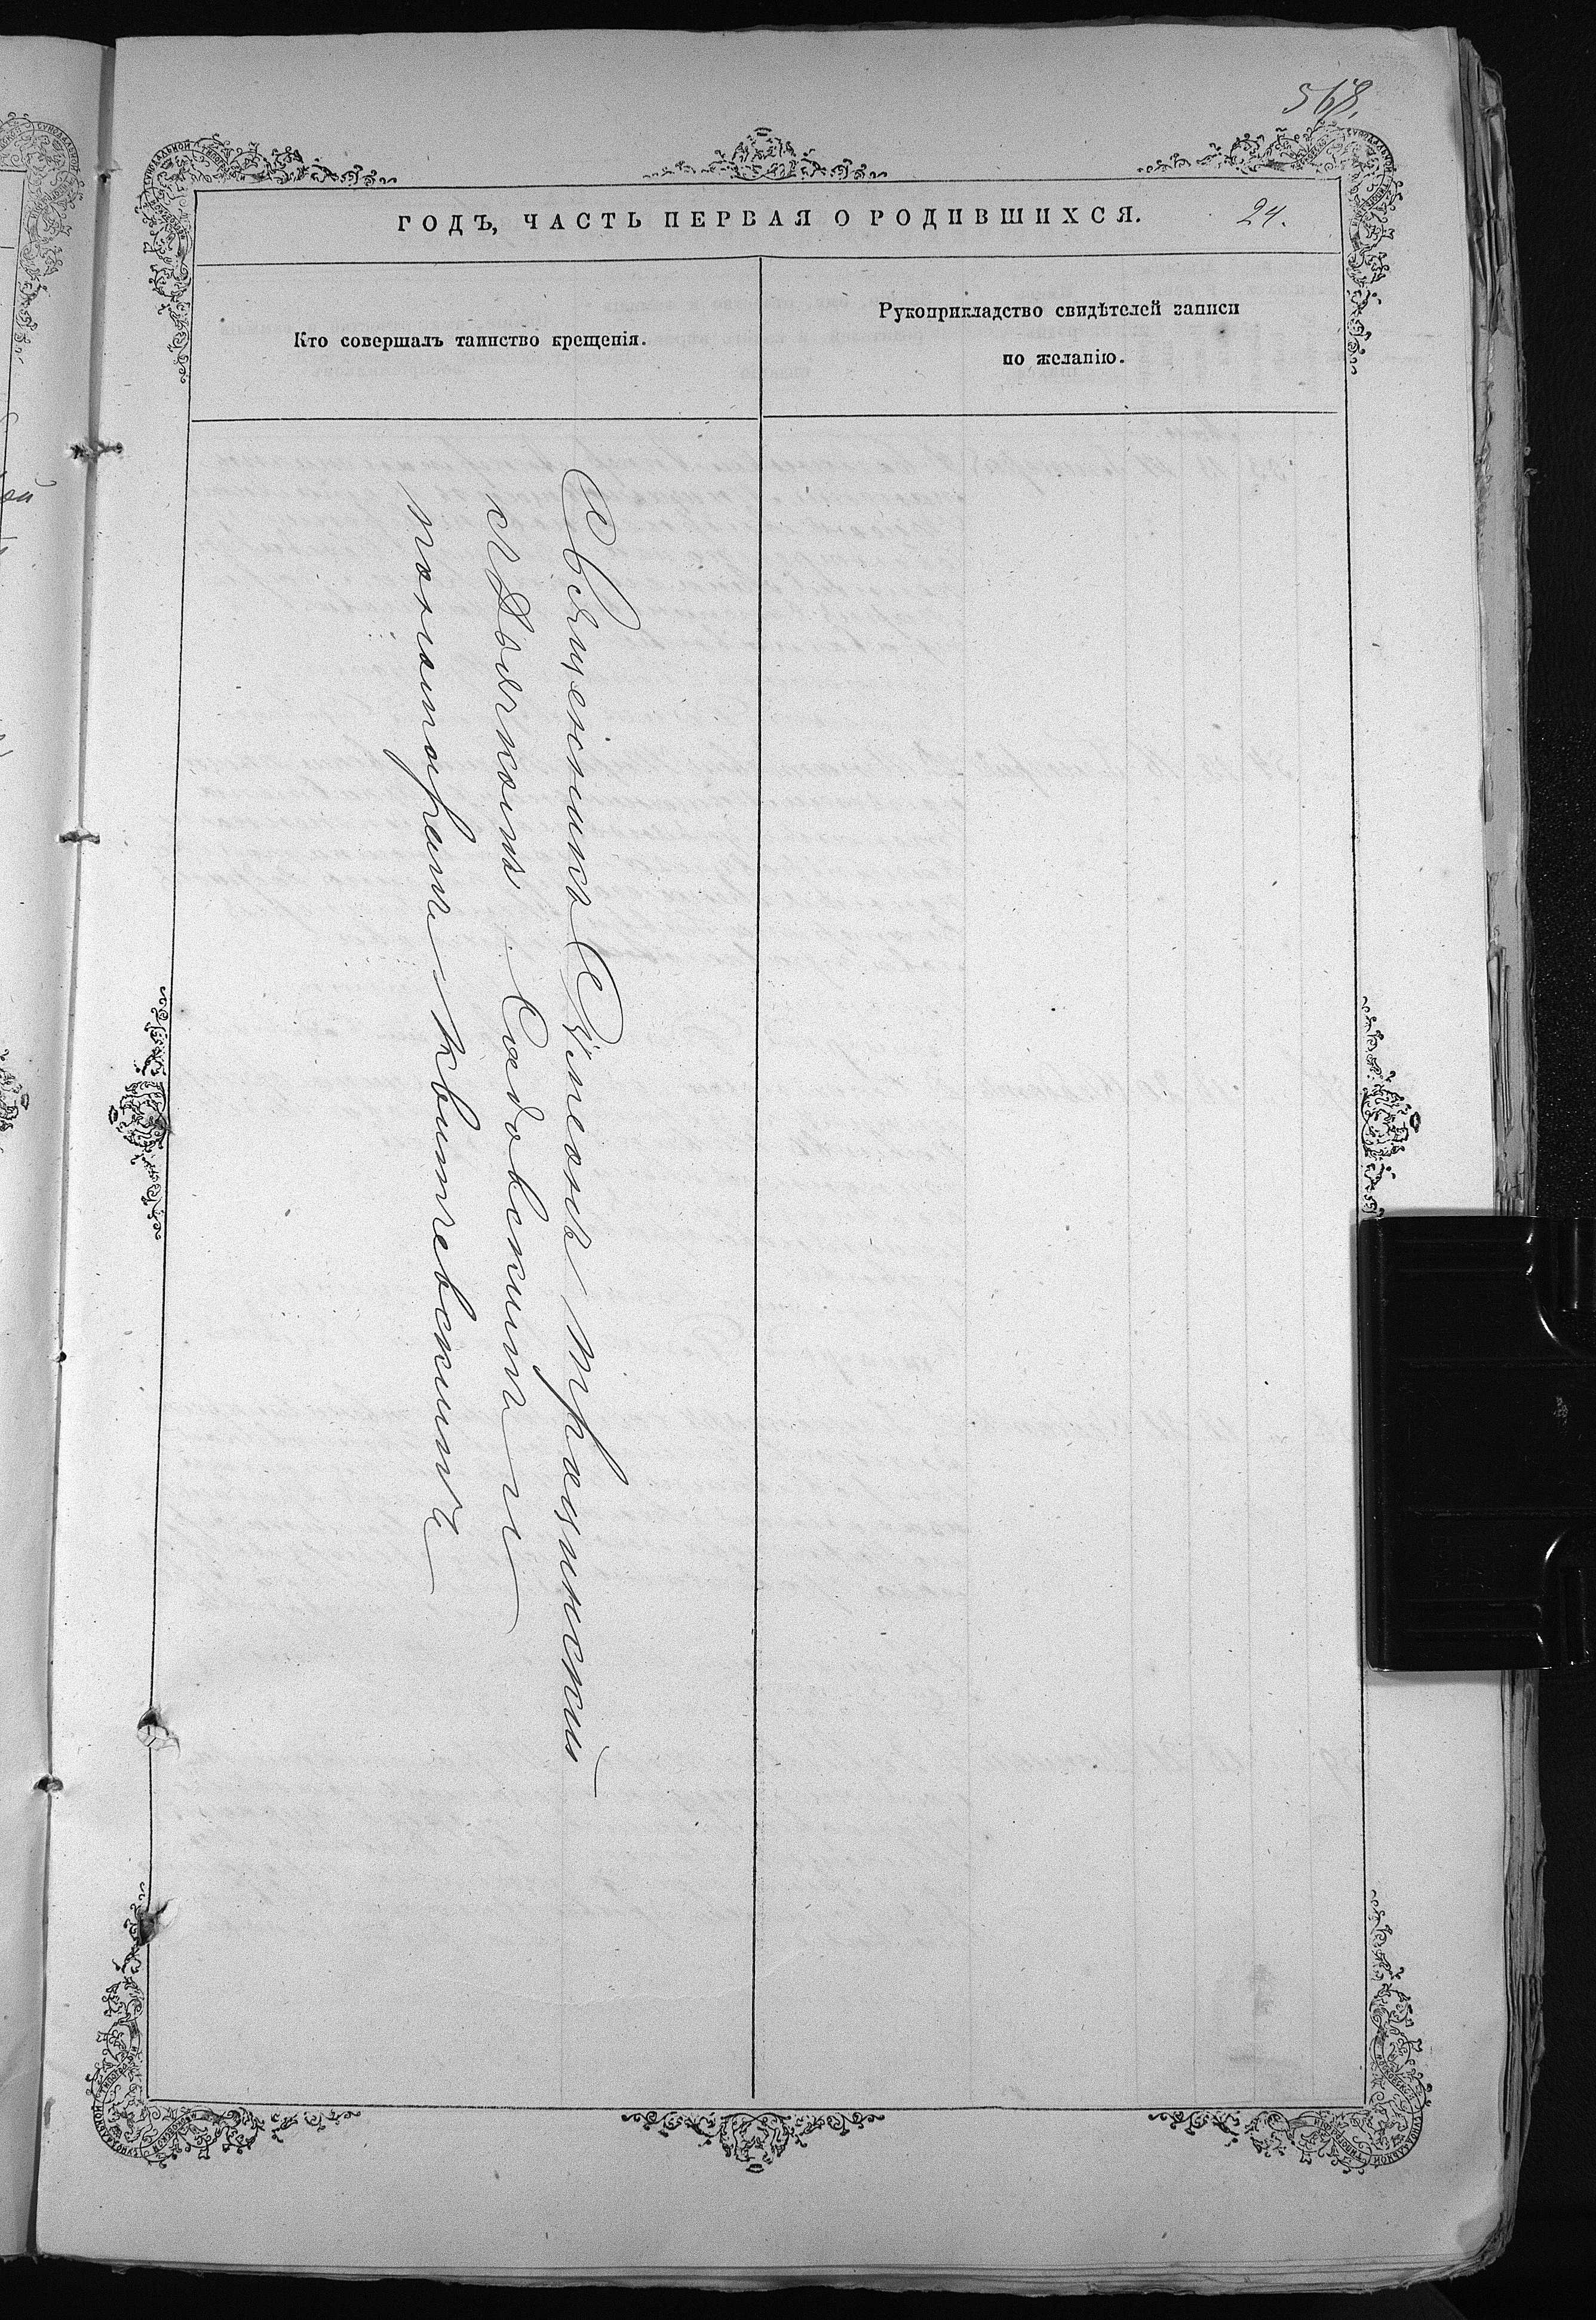 568.
ГОДЪ, ЧАСТЬ ПЕРВАЯ О РОДИВШИХСЯ.
24.
Кто совершалъ таинство крещенія.
Рукоприкладство свидѣтелей записи
по желанію.
Священникъ Сѵмеонъ
съ Дьячкомъ Садовскимъ и
пономаремъ Квитчевскимъ